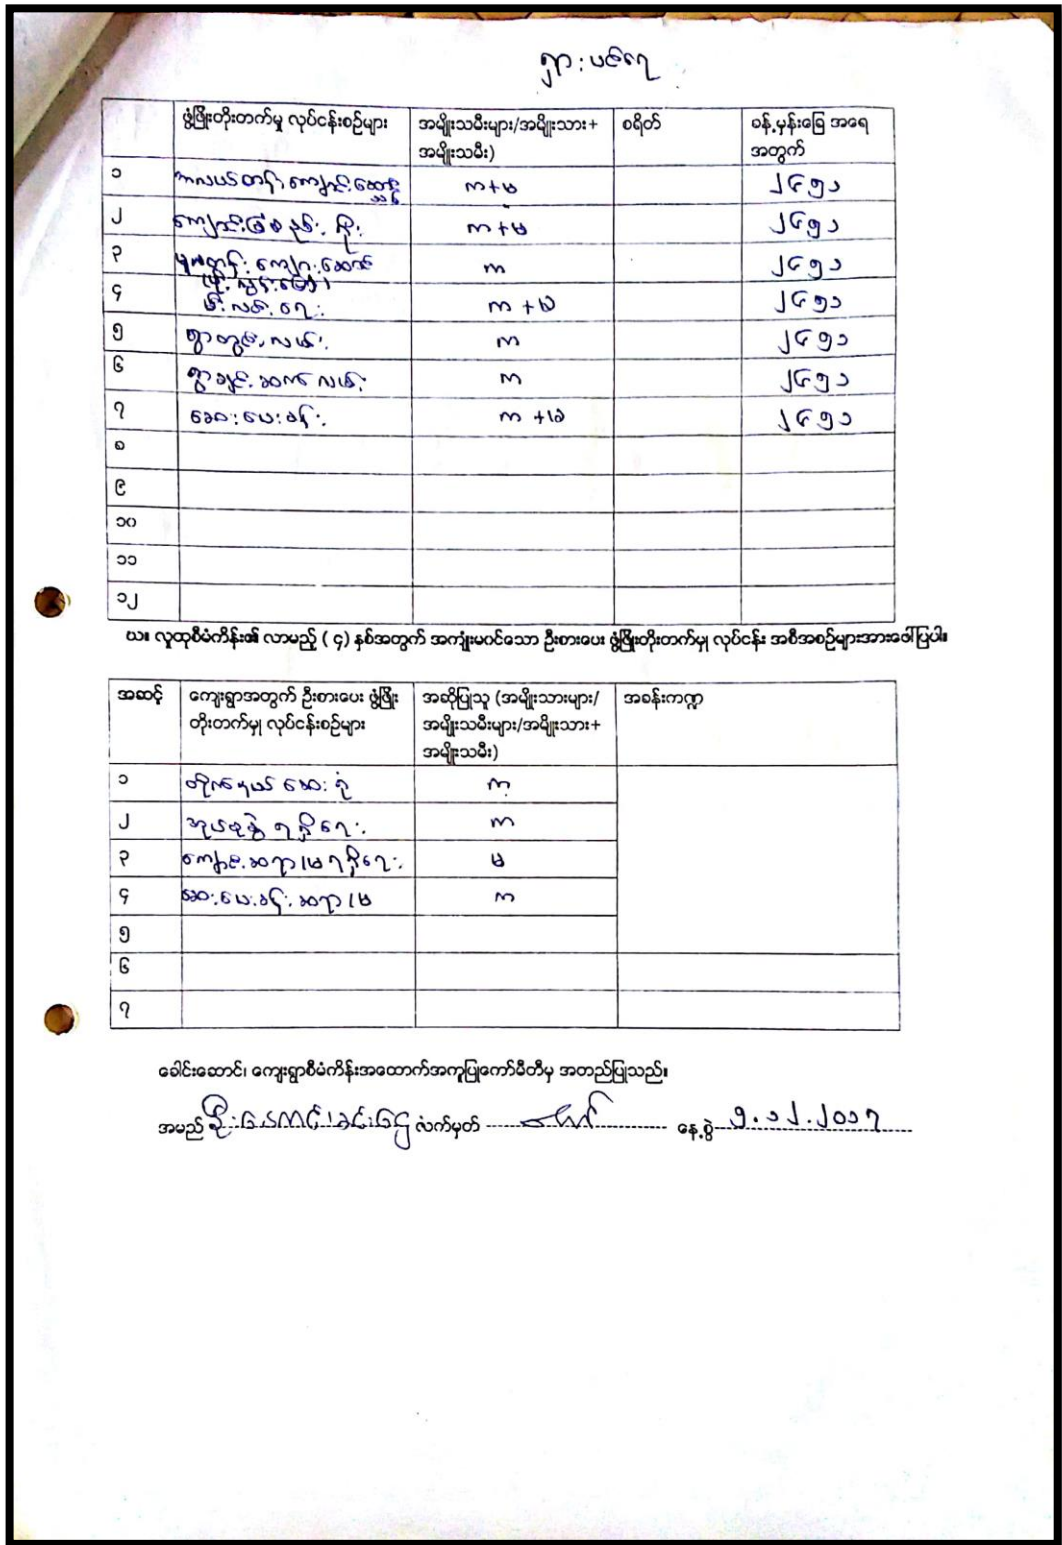 ရှားပင်ရေ
ဖွံ့ဖြိုးတိုးတက်မှု လုပ်ငန်းစဉ်များ
အမျိုးသမီးများ/အမျိုးသား+
အမျိုးသမီး)
စရိတ်
ခန့်မှန်းခြေ အရေ
အတွက်
၁ ကျောင်းဆောင် က+မ ၂၄၅၁
၂ က+မ ၂၄၅၁
၃ က ၂၄၅၁
၄ မီးလင်းရေး က+မ ၂၄၅၁
၅ ရွာတွင်းလမ်း က ၂၄၅၁
၆ ရွာချင်းဆက်လမ်း က ၂၄၅၁
၇ ဆေးပေးခန်း က+မ ၂၄၅၁
၈
၉
၁၀
၁၁
၁၂
ဃ။ လူထုစီမံကိန်း၏ လာမည့် ( ၄) နှစ်အတွက် အကျုံးမဝင်သော ဦးစားပေး ဖွံ့ဖြိုးတိုးတက်မှု လုပ်ငန်း အစီအစဉ်များအားဖေါ်ပြပါ။
အဆင့်
ကျေးရွာအတွက် ဦးစားပေး ဖွံ့ဖြိုး
တိုးတက်မှု လုပ်ငန်းစဉ်များ
အဆိုပြုသူ (အမျိုးသားများ/
အမျိုးသမီးများ/အမျိုးသား+
အမျိုးသမီး)
အခန်းကဏ္ဍ
၁ တိုက်နယ်ဆေးရုံ က
၂ အုပ်စုခွဲ ရရှိရေး က
၃ ကျောင်းဆရာ/မ ရရှိရေး မ
၄ ဆေးပေးခန်းဆရာ/မ က
၅
၆
၇
ခေါင်းဆောင်၊ ကျေးရွာစီမံကိန်းအထောက်အကူပြုကော်မီတီမှ အတည်ပြုသည်။
အမည် လက်မှတ် နေ့စွဲ ၅.၁၂.၂၀၁၇